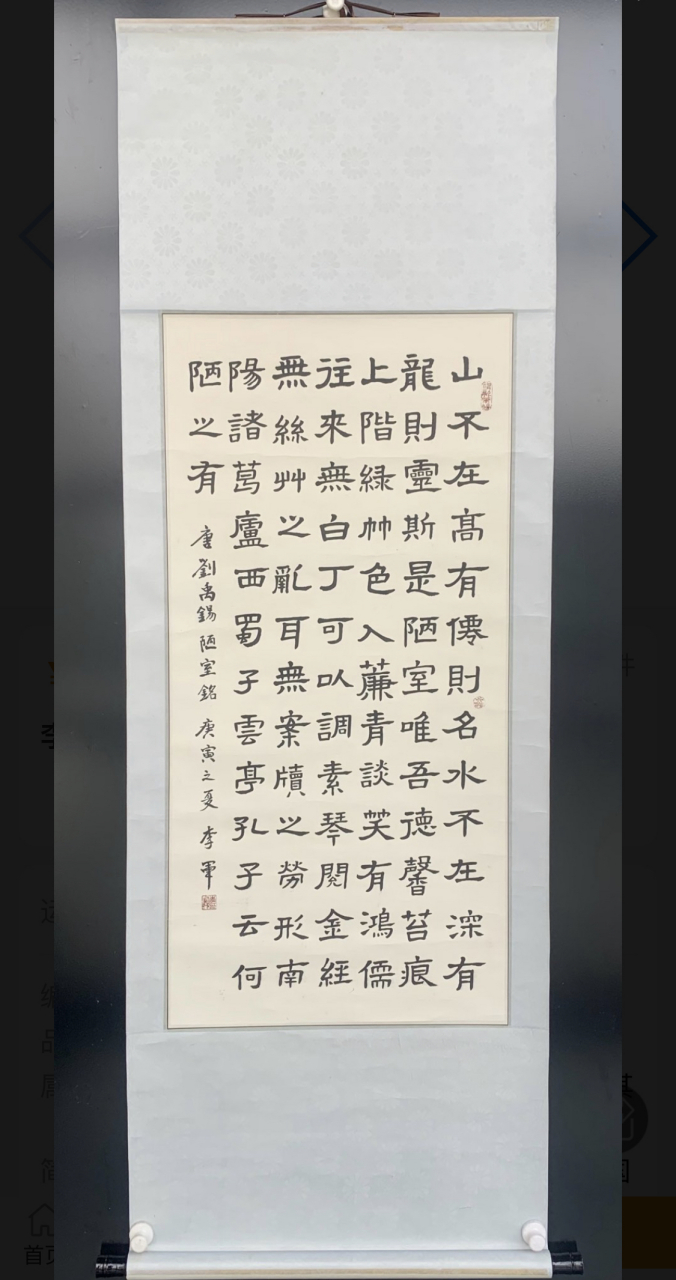 山不在髙有僊則名水不在深有
龍則靈斯是陋室唯吾德馨苔痕
上階緑艸色入薕青談笑有鴻儒
往來無白丁可以調素琴閱金經
無絲竹之亂耳無案牘之勞形南
陽諸葛廬西蜀子雲亭孔子云何
陋之有
唐劉禹錫陋室銘 庚寅之夏 李軍